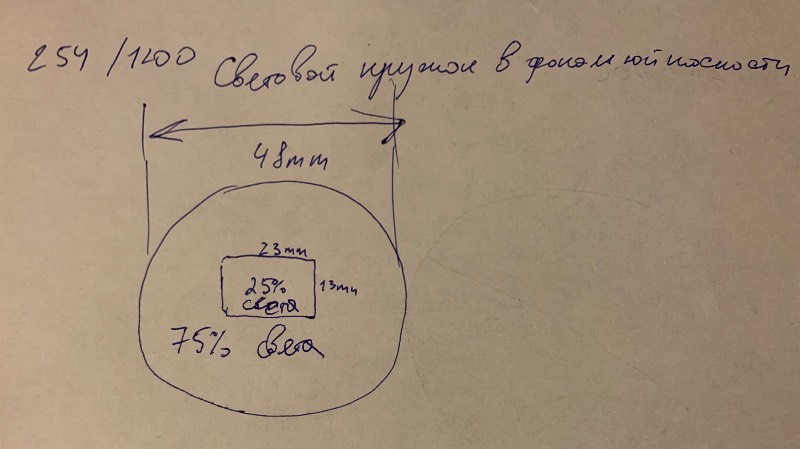 254/1200 Световой кружок в фокальной плоскости
48mm
23mm
25%
света
13mm
75% света